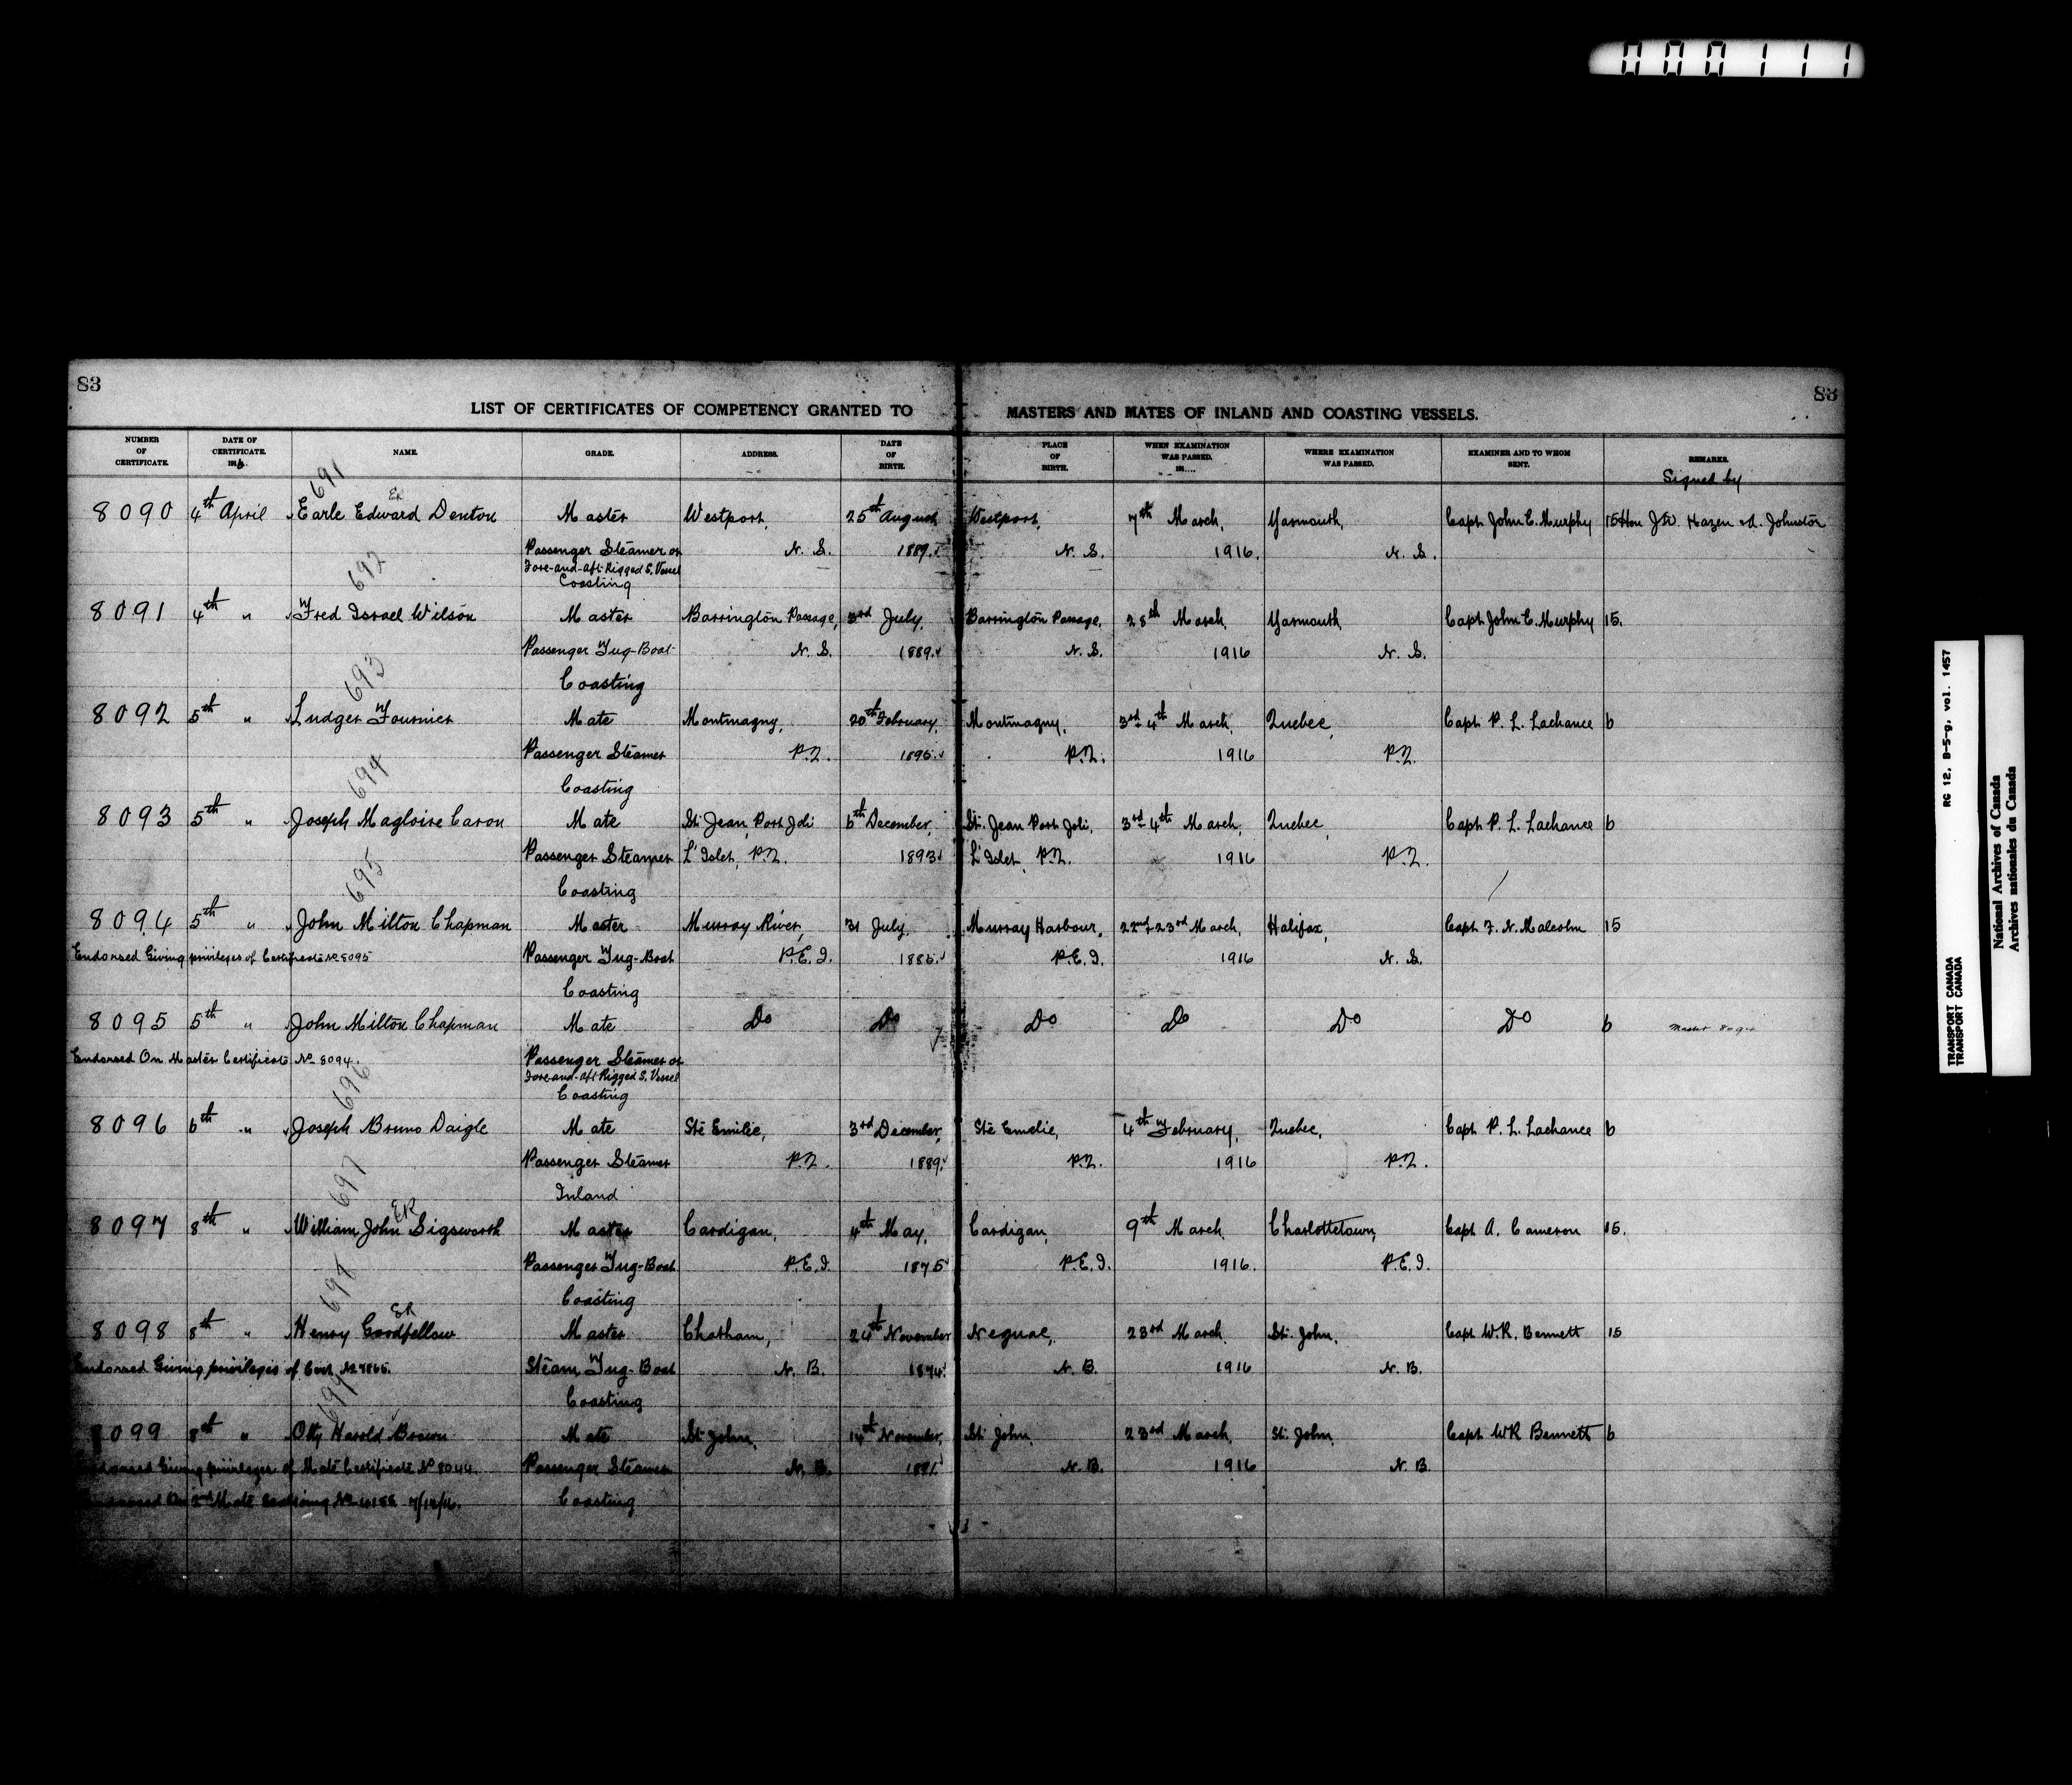 000111
83
83
LIST OF CERTIFICATES OF COMPETENCY GRANTED TO MASTERS AND MATES OF INLAND AND COASTING VESSELS.
NUMBER OF CERTIFICATE. DATE OF CERTIFICATE. 1916. NAME. GRADE. ADDRESS. DATE OF BIRTH. PLACE OF BIRTH. WHEN EXAMINATION WAS PASSED. 191.... WHERE EXAMINATION WAS PASSED. EXAMINER AND TO WHOM SENT. REMARKS.
Signed by
691
ER
8090 4th April Earle Edward Denton Master Westport, 25th August Westport, 7th March, Yarmouth, Capt John E. Murphy 15 Hon J.W. Hazen & A. Johnston
Passenger Steamer or N. S. 1889. N. S. 1916. N. S.
Fore-and-aft-Rigged S. Vessel
Coasting
692
8091 4th " Fred Israel Wilson Master Barrington Passage, 3rd July, Barrington Passage, 28th March, Yarmouth, Capt John E. Murphy 15.
Passenger Tug-Boat N. S. 1889. N. S. 1916 N. S.
Coasting
693
8092 5th " Ludger Fournier Mate Montmagny, 20th February, Montmagny, 3rd-4th March, Quebec, Capt P. L. Lachance 6
Passenger Steamer P.Q. 1895. P.Q. 1916 P.Q.
Coasting
694
8093 5th " Joseph Magloire Caron Mate St. Jean Port Joli 6th December, St. Jean Port Joli, 3rd-4th March, Quebec, Capt P. L. Lachance 6
Passenger Steamer L'Islet, P.Q. 1893 L'Islet, P.Q. 1916 P.Q.
Coasting
695
8094 5th " John Milton Chapman Master Murray River, 31 July, Murray Harbour, 22nd-23rd March, Halifax, Capt F. N. Malcolm 15
Endorsed Giving privileges of Certificate No 8095 Passenger Tug-Boat P.E.I. 1885. P.E.I. 1916 N. S.
Coasting
8095 5th " John Milton Chapman Mate Do Do Do Do Do Do 6 Master 8094
Endorsed On Master Certificate No 8094. Passenger Steamer or
Fore-and-aft Rigged S. Vessel
Coasting
696
8096 6th " Joseph Bruno Daigle Mate Ste Emilie, 3rd December, Ste Emelie, 4th February, Quebec, Capt P. L. Lachance 6
Passenger Steamer P.Q. 1889. P.Q. 1916 P.Q.
Inland
697
ER
8097 8th " William John Sigsworth Master Cardigan, 4th May, Cardigan, 9th March, Charlottetown, Capt A. Cameron 15.
Passenger Tug-Boat P.E.I. 1875 P.E.I. 1916. P.E.I.
Coasting
698
ER
8098 8th " Henry Goodfellow Master Chatham, 24th November Neguac, 23rd March, St. John, Capt W.R. Bennett 15
Endorsed Giving privileges of Cert No 7865. Steam Tug-Boat N. B. 1874. N. B. 1916 N. B.
Coasting
699
8099 8th " Otty Harold Brown Mate St John, 14th November, St John, 23rd March, St. John, Capt W R Bennett 6
Endorsed Giving privileges of Mate Certificate No 8044. Passenger Steamer N. B. 1891. N. B. 1916 N. B.
2nd Mate 7/12/16. Coasting
RG 12, B-5-g, vol. 1457
TRANSPORT CANADA
TRANSPORT CANADA
National Archives of Canada
Archives nationales du Canada